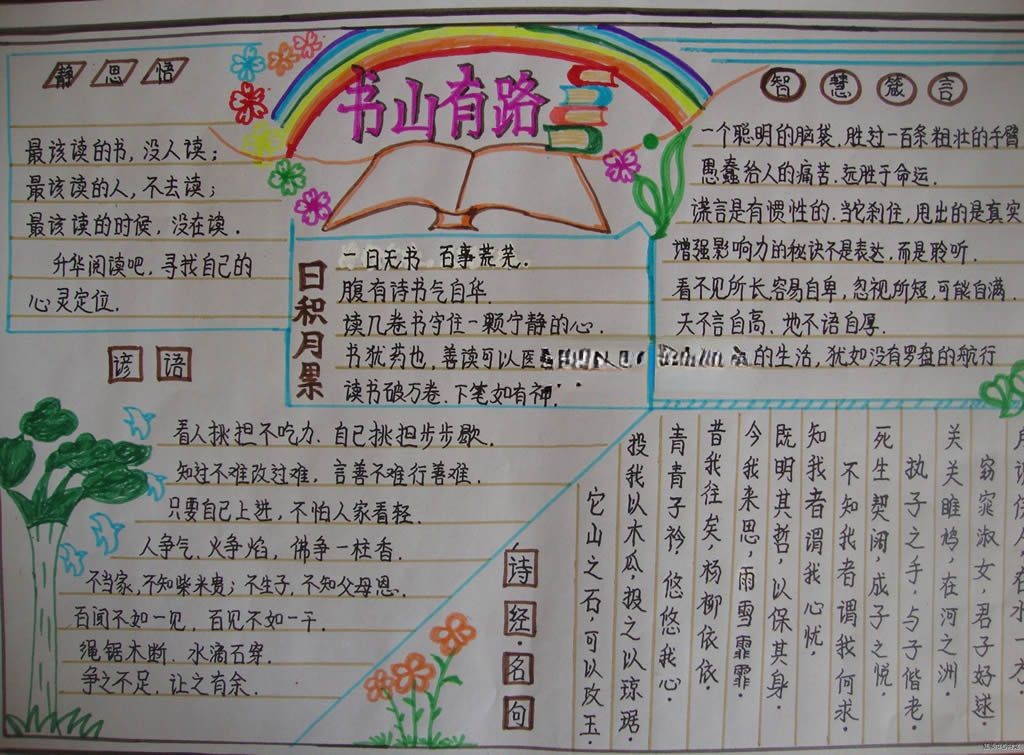 书山有路
静思悟
最该读的书，没人读；
最该读的人，不去读；
最该读的时候，没在读．
升华阅读吧，寻找自己的
心灵定位．
日积月累
一日无书 百事荒芜．
腹有诗书气自华．
读几卷书守住一颗宁静的心．
书犹药也，善读可以医
读书破万卷．下笔如有神．
智慧箴言
一个聪明的脑袋．胜过一百条粗壮的手臂
愚蠢给人的痛苦．远胜于命运．
谎言是有惯性的．当它刹住，甩出的是真实
增强影响力的秘诀不是表达，而是聆听．
看不见所长，容易自卑，忽视所短，可能自满．
天不言自高、地不语自厚．
的生活，犹如没有罗盘的航行
谚语
看人挑担不吃力．自己挑担步步歇．
知过不难改过难，言善不难行善难．
只要自己上进，不怕人家看轻．
人争气．火争焰，佛争一柱香．
不当家，不知柴米贵；不生子，不知父母恩．
百闻不如一见，百见不如一干．
绳锯木断．水滴石穿．
争之不足，让之有余．
诗经·名句
在水一方．
窈窕淑女，君子好逑．
关关雎鸠，在河之洲．
执子之手，与子偕老．
死生契阔，成子之悦．
不知我者谓我何求
知我者谓我心忧，
既明其哲，以保其身．
今我来思，雨雪霏霏．
昔我往矣，杨柳依依．
青青子衿，悠悠我心．
投我以木瓜，投之以琼琚．
它山之石，可以攻玉．